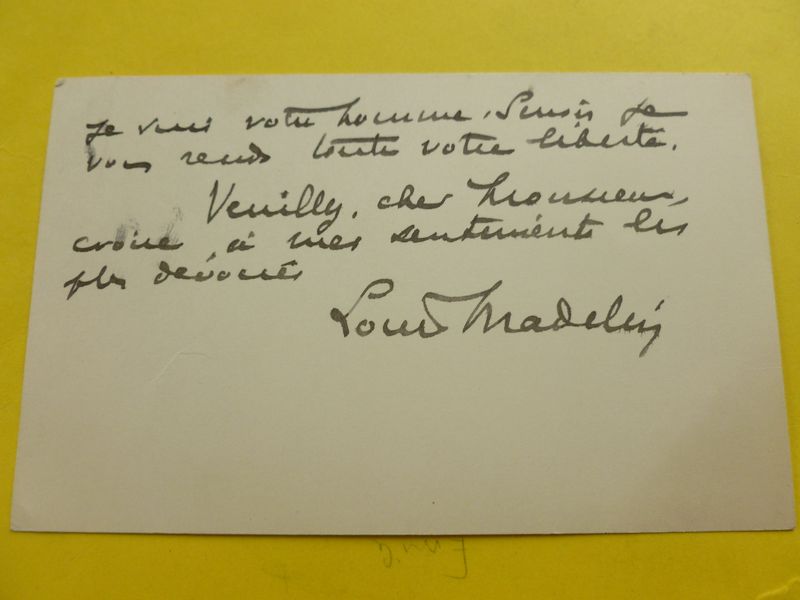 je suis votre homme, Sinon je
vous rends toute votre liberté.
Veuillez, cher Monsieur,
croire, à mes sentiments les
plus dévoués
Louis Madelin